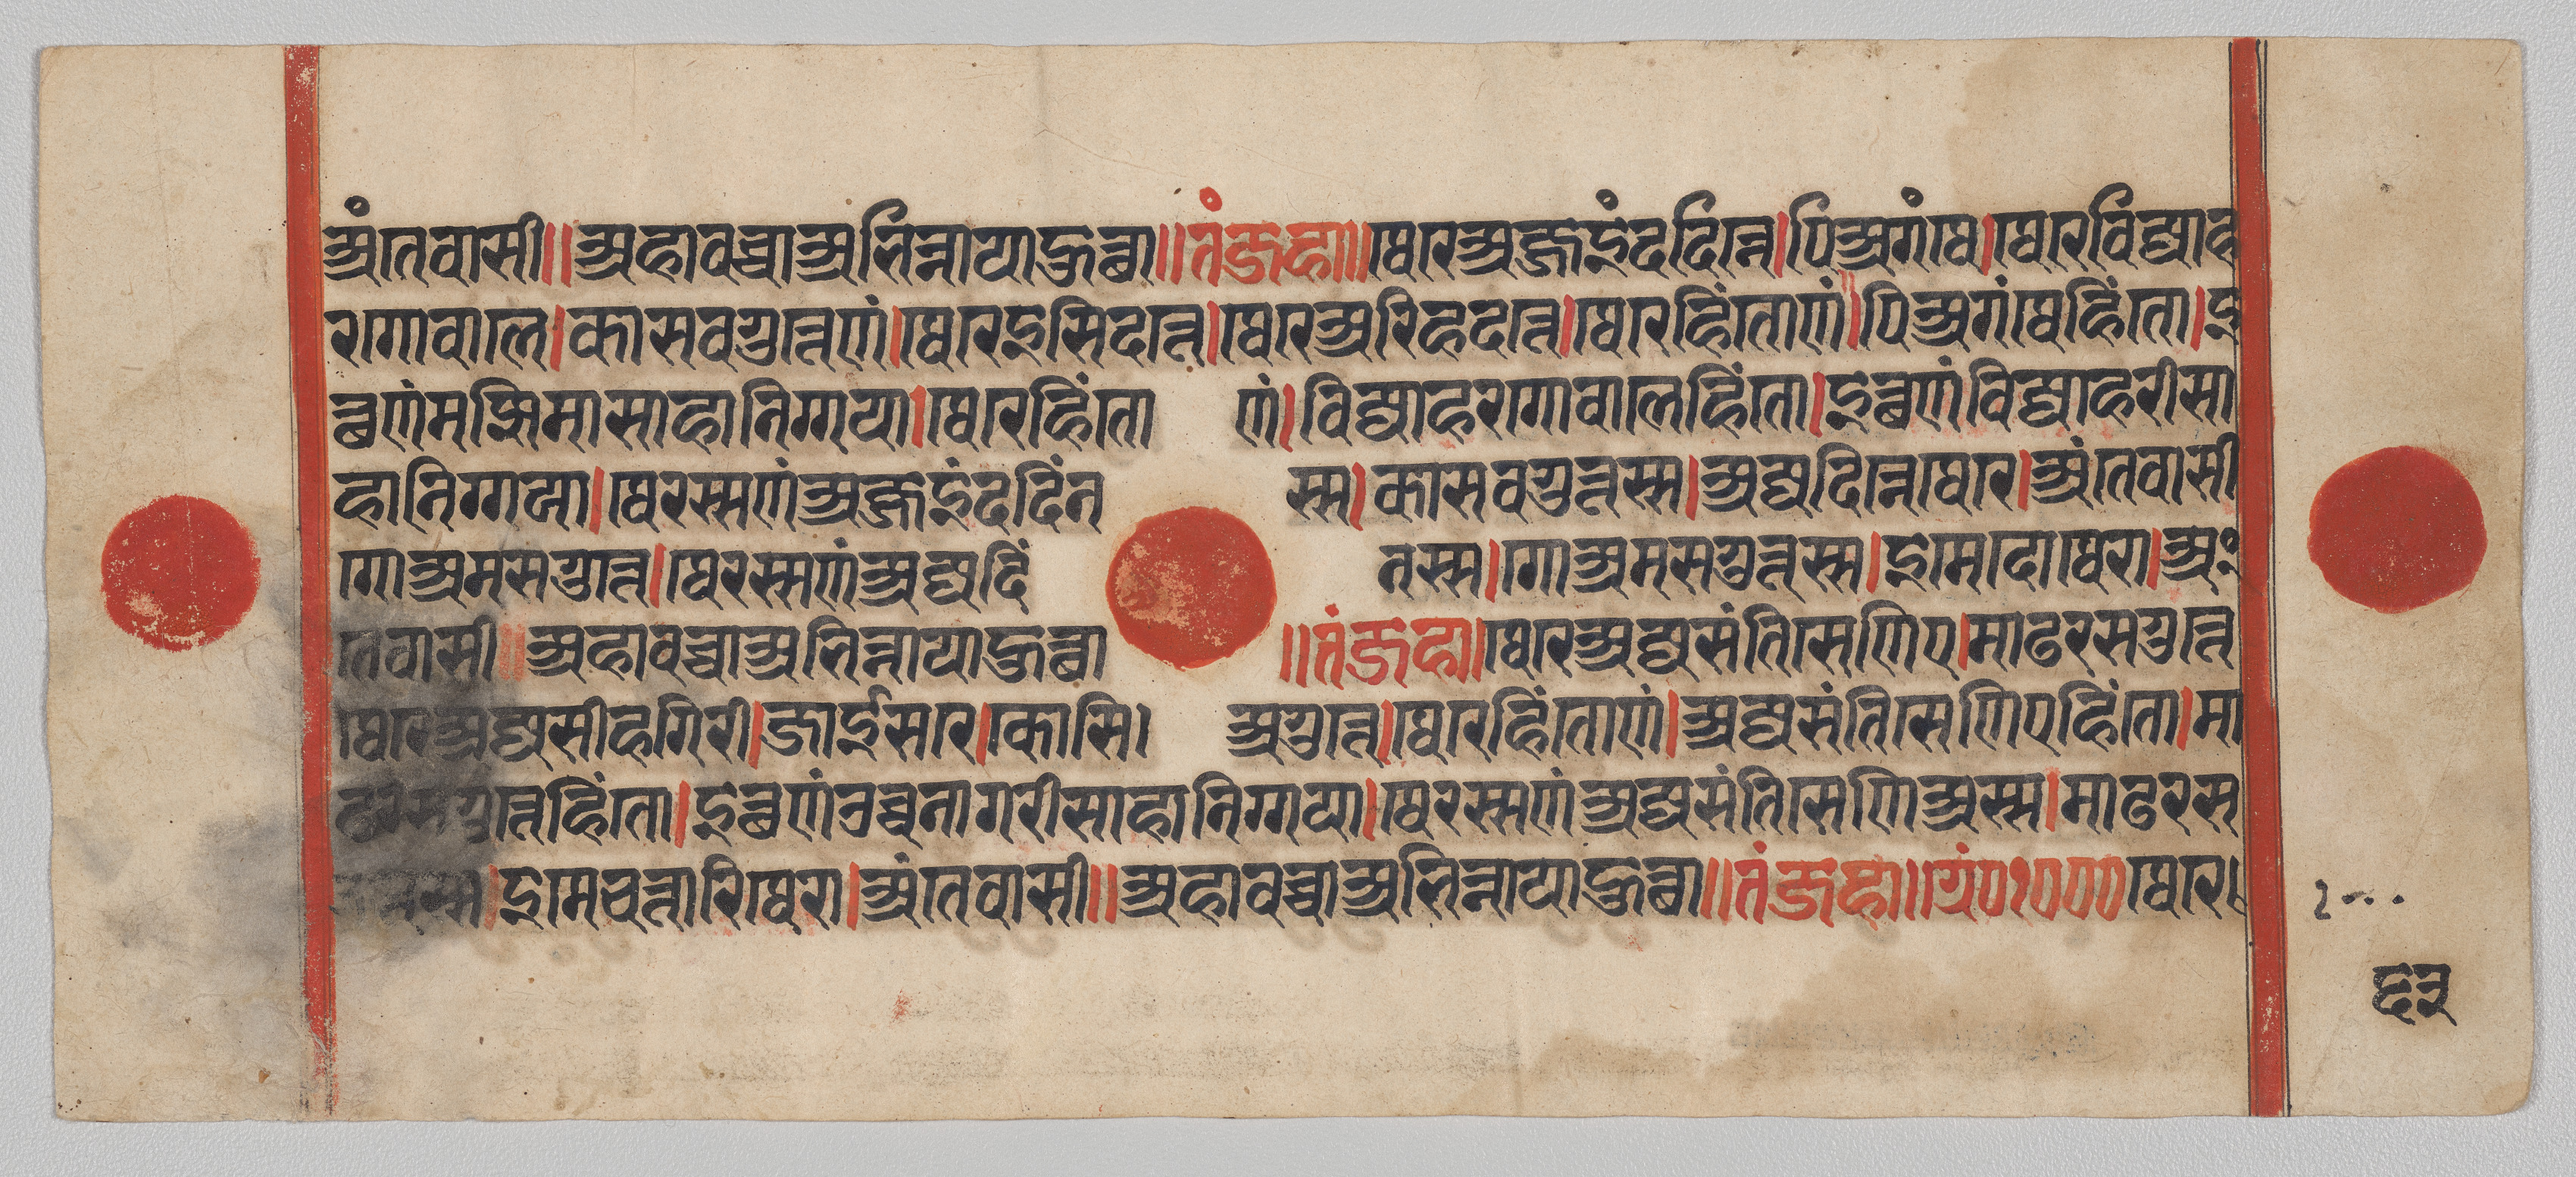 अंतेवासी॥अहावच्चाअभिन्नायाहुत्था॥तंजहा॥थेरेअज्जइंददिन्ने।पिअगंथे।थेरेविज्जाह
रगोवाले।कासवगुत्तेणं।थेरेइसिदत्ते।थेरेअरिहदत्ते।थेरेहिंतोणं।पिअगंथेहिंतो।इ
त्थणंमज्झिमासाहानिग्गया।थेरेहिंतो णं।विज्जाहरगोवालेहिंतो।इत्थणंविज्जाहरीसा
हानिग्गया।थेरस्सणंअज्जइंददिंन स्स।कासवगुत्तस्स।अज्जदिन्नेथेरे।अंतेवासी
गोअमसगुत्ते।थेरस्सणंअज्जदिं नस्स।गोअमसगुत्तस्स।इमेदोथेरा।अं
तेवासी॥अहावच्चाअभिन्नायाहुत्था ॥तंजहा॥थेरेअज्जसंतिसेणिए।माढरसगुत्ते
थेरेअज्जसीहगिरी।जाईसरे।कोसि अगुत्ते।थेरेहिंतोणं।अज्जसंतिसेणिएहिंतो।मा
ढरसगुत्तेहिंतो।इत्थणंउच्चनागरीसाहानिग्गया।थेरस्सणंअज्जसंतिसेणिअस्स।माढरस
गुत्तस्स।इमेचत्तारिथेरा।अंतेवासी॥अहावच्चाअभिन्नायाहुत्था॥तंजहा॥ग्रं०१०००थेरे।
६३